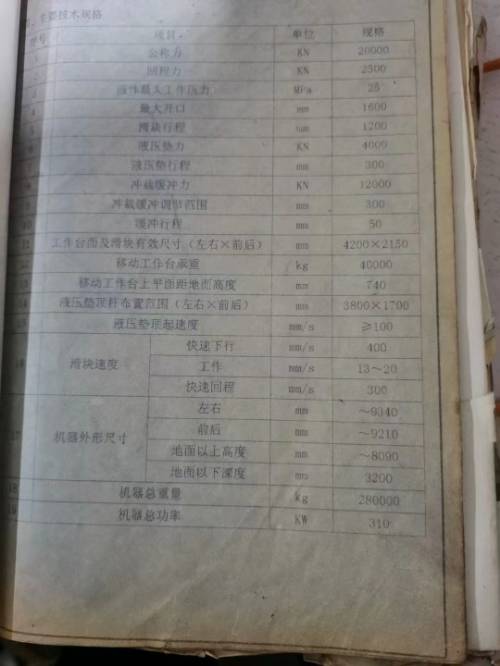 主要技术规格
序号 项目 单位 规格
1 公称力 KN 20000
2 回程力 KN 2500
液体最大工作压力 MPa 25
4 最大开口 mm 1600
滑块行程 mm 1200
液压垫力 KN 4000
液压垫行程 mm 300
冲裁缓冲力 KN 12000
冲裁缓冲调节范围 mm 300
10 缓冲行程 mm 50
11 工作台面及滑块有效尺寸（左右×前后） mm 4200×2150
移动工作台承重 kg 40000
移动工作台上平面距地面高度 mm 740
液压垫顶杆布置范围（左右×前后） mm 3800×1700
液压垫顶起速度 mm/s ≥100
16 滑块速度 快速下行 mm/s 400
工作 mm/s 13～20
快速回程 mm/s 300
17 机器外形尺寸 左右 mm ～9340
前后 mm ～9210
地面以上高度 mm ～8090
地面以下深度 mm 3200
18 机器总重量 kg 280000
19 机器总功率 KW 310